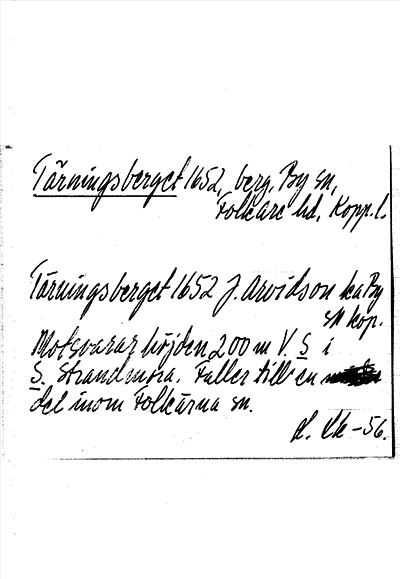 Tärningsberget 1652, berg, By sn,
Folkare hd, Kopp.l.
Tärningsberget 1652 J. Arvidson ka By
sn kop.
Motsvarar höjden 200 m V. S i
S. Strandmora. Faller till en
del inom Folkärna sn.
-56.